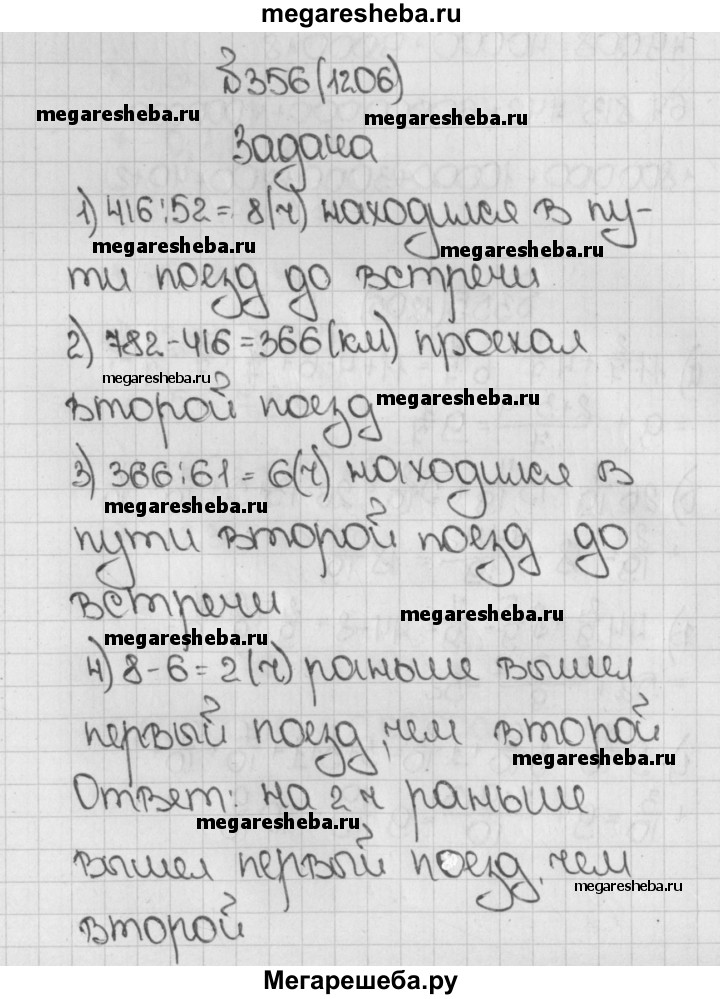 megaresheba.ru
№356(1206)
megaresheba.ru
megaresheba.ru
Задача
1) 416:52=8(ч) находился в пу-
megaresheba.ru
megaresheba.ru
ти поезд до встречи
2) 782-416=366(км) проехал
megaresheba.ru
второй поезд
megaresheba.ru
3) 366:61=6(ч) находился в
megaresheba.ru
пути второй поезд до
встречи
megaresheba.ru
megaresheba.ru
4) 8-6=2(ч) раньше вышел
первый поезд, чем второй
megaresheba.ru
Ответ: на 2 ч раньше
megaresheba.ru
вышел первый поезд, чем
megaresheba.ru
второй
Мегарешеба.ру